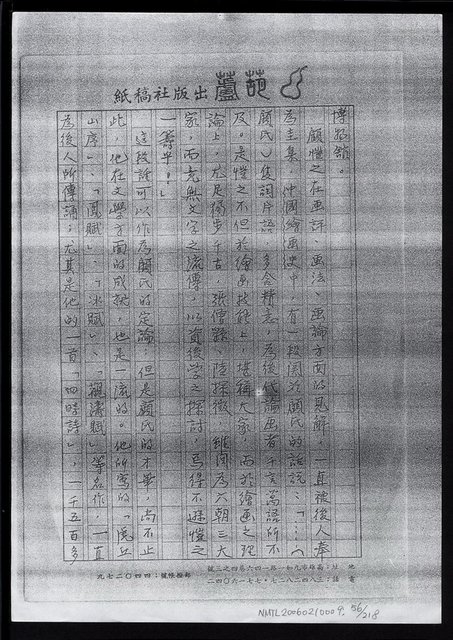 葫蘆出版社稿紙
博物館。
顧愷之在画評、画法、画論方面的見解，一直被後人奉
為圭臬，中國繪画史中，有一段関於顧氏的話説：「……（
顧氏）隻詞片語，多含精意，為後代論画者千言萬語所不
及。是愷之不但於繪画技能上，堪稱大家，而於繪画之理
論上，尤足獨步千古，張僧繇、陸探微，雖同為六朝三大
家，而竟無文字之流傳，以資後学之探討，焉得不遜愷之
一籌乎！」
這段話可以作為顧氏的定論，但是顧氏的才華，尚不止
此，他在文學方面的成就，也是一流的。他所寫的「
山序」、「鳳賦」、「冰賦」、「觀濤賦」等名作，一直
為後人所傳誦，尤其是他的一首「四時詩」，一千五百多
地址：高雄市九如一路一四六巷四之三號
電話：三八四二八二七·七七一六〇四二
郵撥帳號：四四〇二七九
NMTL20060210009. 56/218